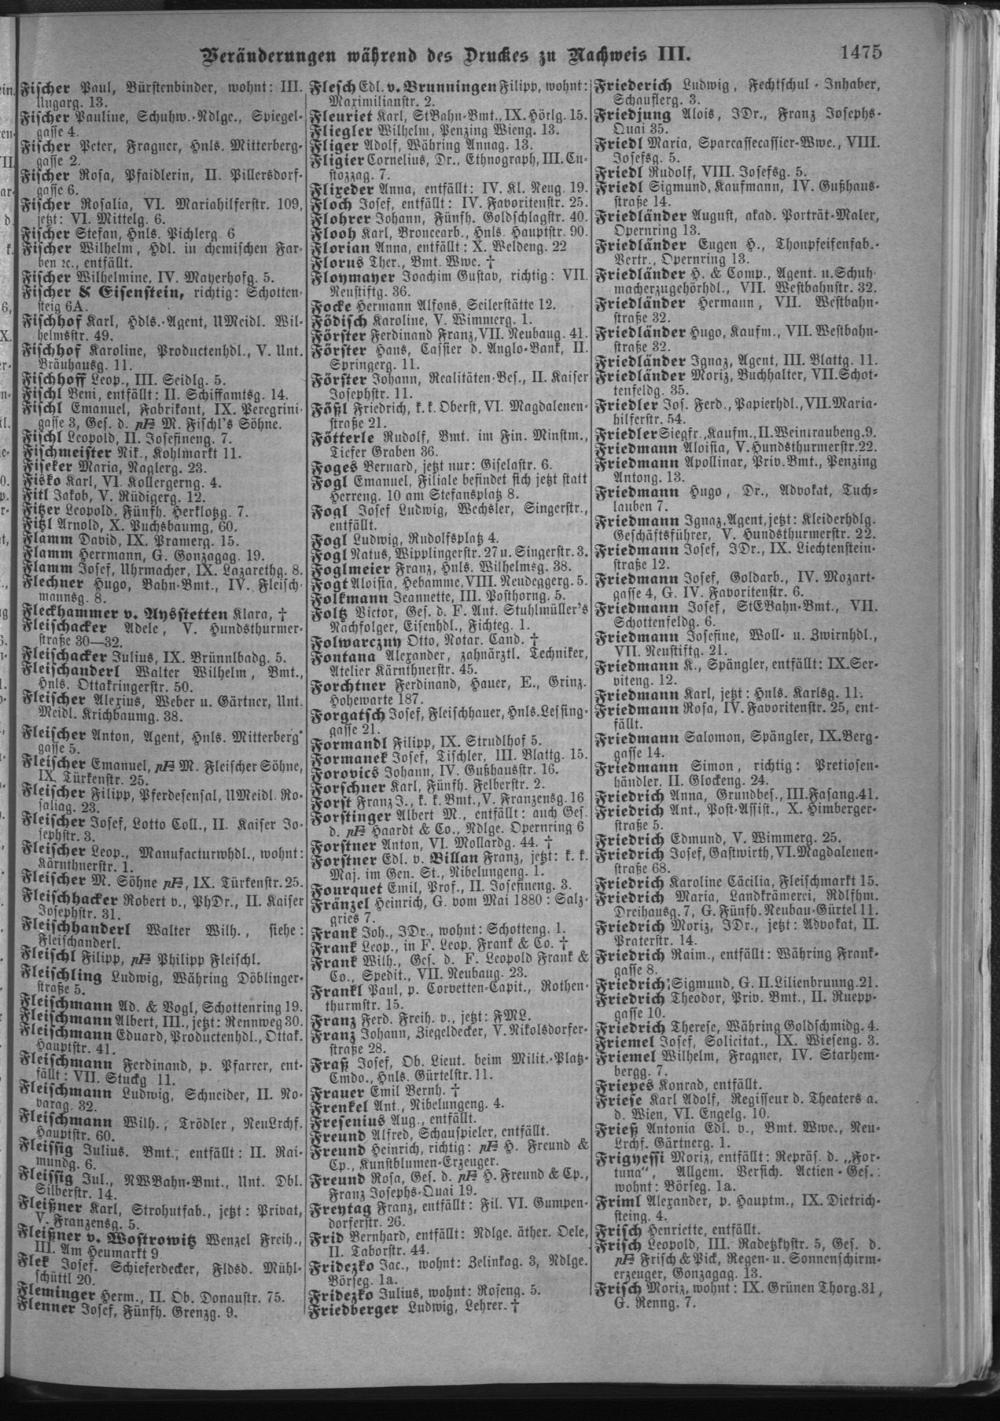 Veränderungen während des Druckes zu Nachweis III.
1475
Fischer Paul, Bürstenbinder, wohnt: III.
Ungarg. 13.
Fischer Pauline, Schuhw.-Ndlge., Spiegel-
gasse 4.
Fischer Peter, Fragner, Hnls. Mitterberg-
gasse 2.
Fischer Rosa, Pfaidlerin, II. Pillersdorf-
gasse 6.
Fischer Rosalia, VI. Mariahilferstr. 109,
jetzt: VI. Mittelg. 6.
Fischer Stefan, Hnls. Pichlerg. 6
Fischer Wilhelm, Hdl. in chemischen Far-
ben ꝛc., entfällt.
Fischer Wilhelmine, IV. Mayerhofg. 5.
Fischer & Eisenstein, richtig: Schotten-
steig 6A.
Fischhof Karl, Hdls.-Agent, UMeidl. Wil-
helmsstr. 49.
Fischhof Karoline, Productenhdl., V. Unt.
Bräuhausg. 11.
Fischhoff Leop., III. Seidlg. 5.
Fischl Beni, entfällt: II. Schiffamtsg. 14.
Fischl Emanuel, Fabrikant, IX. Peregrini-
gasse 3, Ges. d. pff M. Fischl's Söhne.
Fischl Leopold, II. Josefineng. 7.
Fischmeister Nik., Kohlmarkt 11.
Fiseker Maria, Naglerg. 23.
Fisko Karl, VI. Kollergerng. 4.
Fitl Jakob, V. Rüdigerg. 12.
Fitzer Leopold, Fünfh. Herklotzg. 7.
Fitzl Arnold, X. Puchsbaumg. 60.
Flamm David, IX. Pramerg. 15.
Flamm Herrmann, G. Gonzagag. 19.
Flamm Josef, Uhrmacher, IX. Lazarethg. 8.
Flechner Hugo, Bahn-Bmt., IV. Fleisch-
mannsg. 8.
Fleckhammer v. Aysstetten Klara, †
Fleischacker Adele, V. Hundsthurmer-
straße 30—32.
Fleischacker Julius, IX. Brünnlbadg. 5.
Fleischanderl Walter Wilhelm, Bmt.,
Hnls. Ottakringerstr. 50.
Fleischer Alexius, Weber u. Gärtner, Unt.
Meidl. Krichbaumg. 38.
Fleischer Anton, Agent, Hnls. Mitterberg-
gasse 5.
Fleischer Emanuel, pff M. Fleischer Söhne,
IX. Türkenstr. 25.
Fleischer Filipp, Pferdesensal, UMeidl. Ro-
saliag. 23.
Fleischer Josef, Lotto Coll., II. Kaiser Jo-
sephstr. 3.
Fleischer Leop., Manufacturwhdl., wohnt:
Kärnthnerstr. 1.
Fleischer M. Söhne pff, IX. Türkenstr. 25.
Fleischhacker Robert v., PhDr., II. Kaiser
Josephstr. 31.
Fleischhanderl Walter Wilh., siehe:
Fleischanderl.
Fleischl Filipp, pff Philipp Fleischl.
Fleischling Ludwig, Währing Döblinger-
straße 5.
Fleischmann Ad. & Vogl, Schottenring 19.
Fleischmann Albert, III., jetzt: Rennweg 30.
Fleischmann Eduard, Productenhdl., Ottak.
Hauptstr. 41.
Fleischmann Ferdinand, p. Pfarrer, ent-
fällt: VII. Stuckg 11.
Fleischmann Ludwig, Schneider, II. No-
varag. 32.
Fleischmann Wilh., Trödler, NeuLrchf.
Hauptstr. 60.
Fleissig Julius, Bmt., entfällt: II. Rai-
mundg. 6.
Fleissig Jul., NWBahn-Bmt., Unt. Dbl.
Silberstr. 14.
Fleißner Karl, Strohutfab., jetzt: Privat,
V. Franzensg. 5.
Fleißner v. Wostrowitz Wenzel Freih.,
III. Am Heumarkt 9
Flek Josef, Schieferdecker, Fldsd. Mühl-
schüttl 20.
Fleminger Herm., II. Ob. Donaustr. 75.
Flenner Josef, Fünfh. Grenzg. 9.
Flesch Edl. v. Brunningen Filipp, wohnt:
Maximilianstr. 2.
Fleuriet Karl, StBahn-Bmt., IX. Hörlg. 15.
Fliegler Wilhelm, Penzing Wieng. 13.
Fliger Adolf, Währing Annag. 13.
Fligier Cornelius, Dr., Ethnograph, III. Cu-
stozzag. 7.
Flireder Anna, entfällt: IV. Kl. Neug. 19.
Floch Josef, entfällt: IV. Favoritenstr. 25.
Flohrer Johann, Fünfh. Goldschlagstr. 40.
Flooh Karl, Broncearb., Hnls. Hauptstr. 90.
Florian Anna, entfällt: X. Weldeng. 22
Florus Ther., Bmt. Wwe. †
Floymayer Joachim Gustav, richtig: VII.
Neustiftg. 36.
Focke Hermann Alfons, Seilerstätte 12.
Födisch Karoline, V. Wimmerg. 1.
Förster Ferdinand Franz, VII. Neubaug. 41.
Förster Hans, Cassier d. Anglo-Bank, II.
Springerg. 11.
Förster Johann, Realitäten-Bes., II. Kaiser
Josephstr. 11.
Fößl Friedrich, k. k. Oberst, VI. Magdalenen-
straße 21.
Fötterle Rudolf, Bmt. im Fin. Minstm.,
Tiefer Graben 36.
Foges Bernard, jetzt nur: Giselastr. 6.
Fogl Emanuel, Filiale befindet sich jetzt statt
Herreng. 10 am Stefansplatz 8.
Fogl Josef Ludwig, Wechsler, Singerstr.,
entfällt.
Fogl Ludwig, Rudolfsplatz 4.
Fogl Natus, Wipplingerstr. 27 u. Singerstr. 3.
Foglmeier Franz, Hnls. Wilhelmsg. 38.
Fogt Aloisia, Hebamme, VIII. Neudeggerg. 5.
Folkmann Jeannette, III. Posthorng. 5.
Foltz Victor, Ges. d. F. Ant. Stuhlmüller's
Nachfolger, Eisenhdl., Fichteg. 1.
Folwarczny Otto, Notar. Cand. †
Fontana Alexander, zahnärztl. Techniker,
Atelier Kärnthnerstr. 45.
Forchtner Ferdinand, Hauer, E., Grinz.
Hohewarte 187.
Forgatsch Josef, Fleischhauer, Hnls. Lessing-
gasse 21.
Formandl Filipp, IX. Strudlhof 5.
Formanek Josef, Tischler, III. Blattg. 15.
Forovics Johann, IV. Gußhausstr. 16.
Forschner Karl, Fünfh. Felberstr. 2.
Forst Franz J., k. k. Bmt., V. Franzensg. 16
Forstinger Albert M., entfällt: auch Ges.
d. pff Haardt & Co., Ndlge. Opernring 6
Forstner Anton, VI. Mollardg. 44. †
Forstner Edl. v. Billan Franz, jetzt: k. k.
Maj. im Gen. St., Nibelungeng. 1.
Fourquet Emil, Prof., II. Josefineng. 3.
Fränzel Heinrich, G. vom Mai 1880: Salz-
gries 7.
Frank Joh., JDr., wohnt: Schotteng. 1.
Frank Leop., in F. Leop. Frank & Co. †
Frank Wilh., Ges. d. F. Leopold Frank &
Co., Spedit., VII. Neubaug. 23.
Frankl Paul, p. Corvetten-Capit., Rothen-
thurmstr. 15.
Franz Ferd. Freih. v., jetzt: FML.
Franz Johann, Ziegeldecker, V. Nikolsdorfer-
straße 28.
Fraß Josef, Ob. Lieut. beim Milit.-Platz-
Cmdo., Hnls. Gürtelstr. 11.
Frauer Emil Bernh. †
Frenkel Ant., Nibelungeng. 4.
Fresenius Aug., entfällt.
Freund Alfred, Schauspieler, entfällt.
Freund Heinrich, richtig: pff H. Freund &
Cp., Kunstblumen-Erzeuger.
Freund Rosa, Ges. d. pff H. Freund & Cp.,
Franz Josephs-Quai 19.
Freytag Franz, entfällt: Fil. VI. Gumpen-
dorferstr. 26.
Frid Bernhard, entfällt: Ndlge. äther. Oele,
II. Taborstr. 44.
Fridezko Jac., wohnt: Zelinkag. 3, Ndlge.
Börseg. 1a.
Fridezko Julius, wohnt: Roseng. 5.
Friedberger Ludwig, Lehrer. †
Friederich Ludwig, Fechtschul-Inhaber,
Schauflerg. 3.
Friedjung Alois, JDr., Franz Josephs-
Quai 35.
Friedl Maria, Sparcassecassier-Wwe., VIII.
Josefsg. 5.
Friedl Rudolf, VIII. Josefsg. 5.
Friedl Sigmund, Kaufmann, IV. Gußhaus-
straße 14.
Friedländer August, akad. Porträt-Maler,
Opernring 13.
Friedländer Eugen H., Thonpfeifenfab.-
Vertr., Opernring 13.
Friedländer H. & Comp., Agent. u. Schuh-
macherzugehörhdl., VII. Westbahnstr. 32.
Friedländer Hermann, VII. Westbahn-
straße 32.
Friedländer Hugo, Kaufm., VII. Westbahn-
straße 32.
Friedländer Ignaz, Agent, III. Blattg. 11.
Friedländer Moriz, Buchhalter, VII. Schot-
tenfeldg. 35.
Friedler Jos. Ferd., Papierhdl., VII. Maria-
hilferstr. 54.
Friedler Siegfr., Kaufm., II. Weintraubeng. 9.
Friedmann Aloisia, V. Hundsthurmerstr. 22.
Friedmann Apollinar, Priv. Bmt., Penzing
Antong. 13.
Friedmann Hugo, Dr., Advokat, Tuch-
lauben 7.
Friedmann Ignaz, Agent, jetzt: Kleiderhdlg.
Geschäftsführer, V. Hundsthurmerstr. 22.
Friedmann Josef, JDr., IX. Liechtenstein-
straße 12.
Friedmann Josef, Goldarb., IV. Mozart-
gasse 4, G. IV. Favoritenstr. 6.
Friedmann Josef, StEBahn-Bmt., VII.
Schottenfeldg. 6.
Friedmann Josefine, Woll- u. Zwirnhdl.,
VII. Neustiftg. 21.
Friedmann K., Spängler, entfällt: IX. Ser-
viteng. 12.
Friedmann Karl, jetzt: Hnls. Karlsg. 11.
Friedmann Rosa, IV. Favoritenstr. 25, ent-
fällt.
Friedmann Salomon, Spängler, IX. Berg-
gasse 14.
Friedmann Simon, richtig: Pretiosen-
händler, II. Glockeng. 24.
Friedrich Anna, Grundbes., III. Fasang. 41.
Friedrich Ant., Post-Assist., X. Himberger-
straße 5.
Friedrich Edmund, V. Wimmerg. 25.
Friedrich Josef, Gastwirth, VI. Magdalenen-
straße 68.
Friedrich Karoline Cäcilia, Fleischmarkt 15.
Friedrich Maria, Landkrämerei, Rdlfshm.
Dreihausg. 7, G. Fünfh. Neubau-Gürtel 11.
Friedrich Moriz, JDr., jetzt: Advokat, II.
Praterstr. 14.
Friedrich Raim., entfällt: Währing Frank-
gasse 8.
Friedrich Sigmund, G. II. Lilienbrunng. 21.
Friedrich Theodor, Priv. Bmt., II. Ruepp-
gasse 10.
Friedrich Therese, Währing Goldschmidg. 4.
Friemel Josef, Solicitat., IX. Wieseng. 3.
Friemel Wilhelm, Fragner, IV. Starhem-
bergg. 7.
Friepes Konrad, entfällt.
Friese Karl Adolf, Regisseur d. Theaters a.
d. Wien, VI. Engelg. 10.
Frieß Antonia Edl. v., Bmt. Wwe., Neu-
Lrchf. Gärtnerg. 1.
Frigyessi Moriz, entfällt: Repräs. d. „For-
tuna“, Allgem. Versich. Actien-Ges.:
wohnt: Börseg. 1a.
Friml Alexander, p. Hauptm., IX. Dietrich-
steing. 4.
Frisch Henriette, entfällt.
Frisch Leopold, III. Radetzkystr. 5, Ges. d.
pff Frisch & Pick, Regen- u. Sonnenschirm-
erzeuger, Gonzagag. 13.
Frisch Moriz, wohnt: IX. Grünen Thorg. 31,
G. Renng. 7.